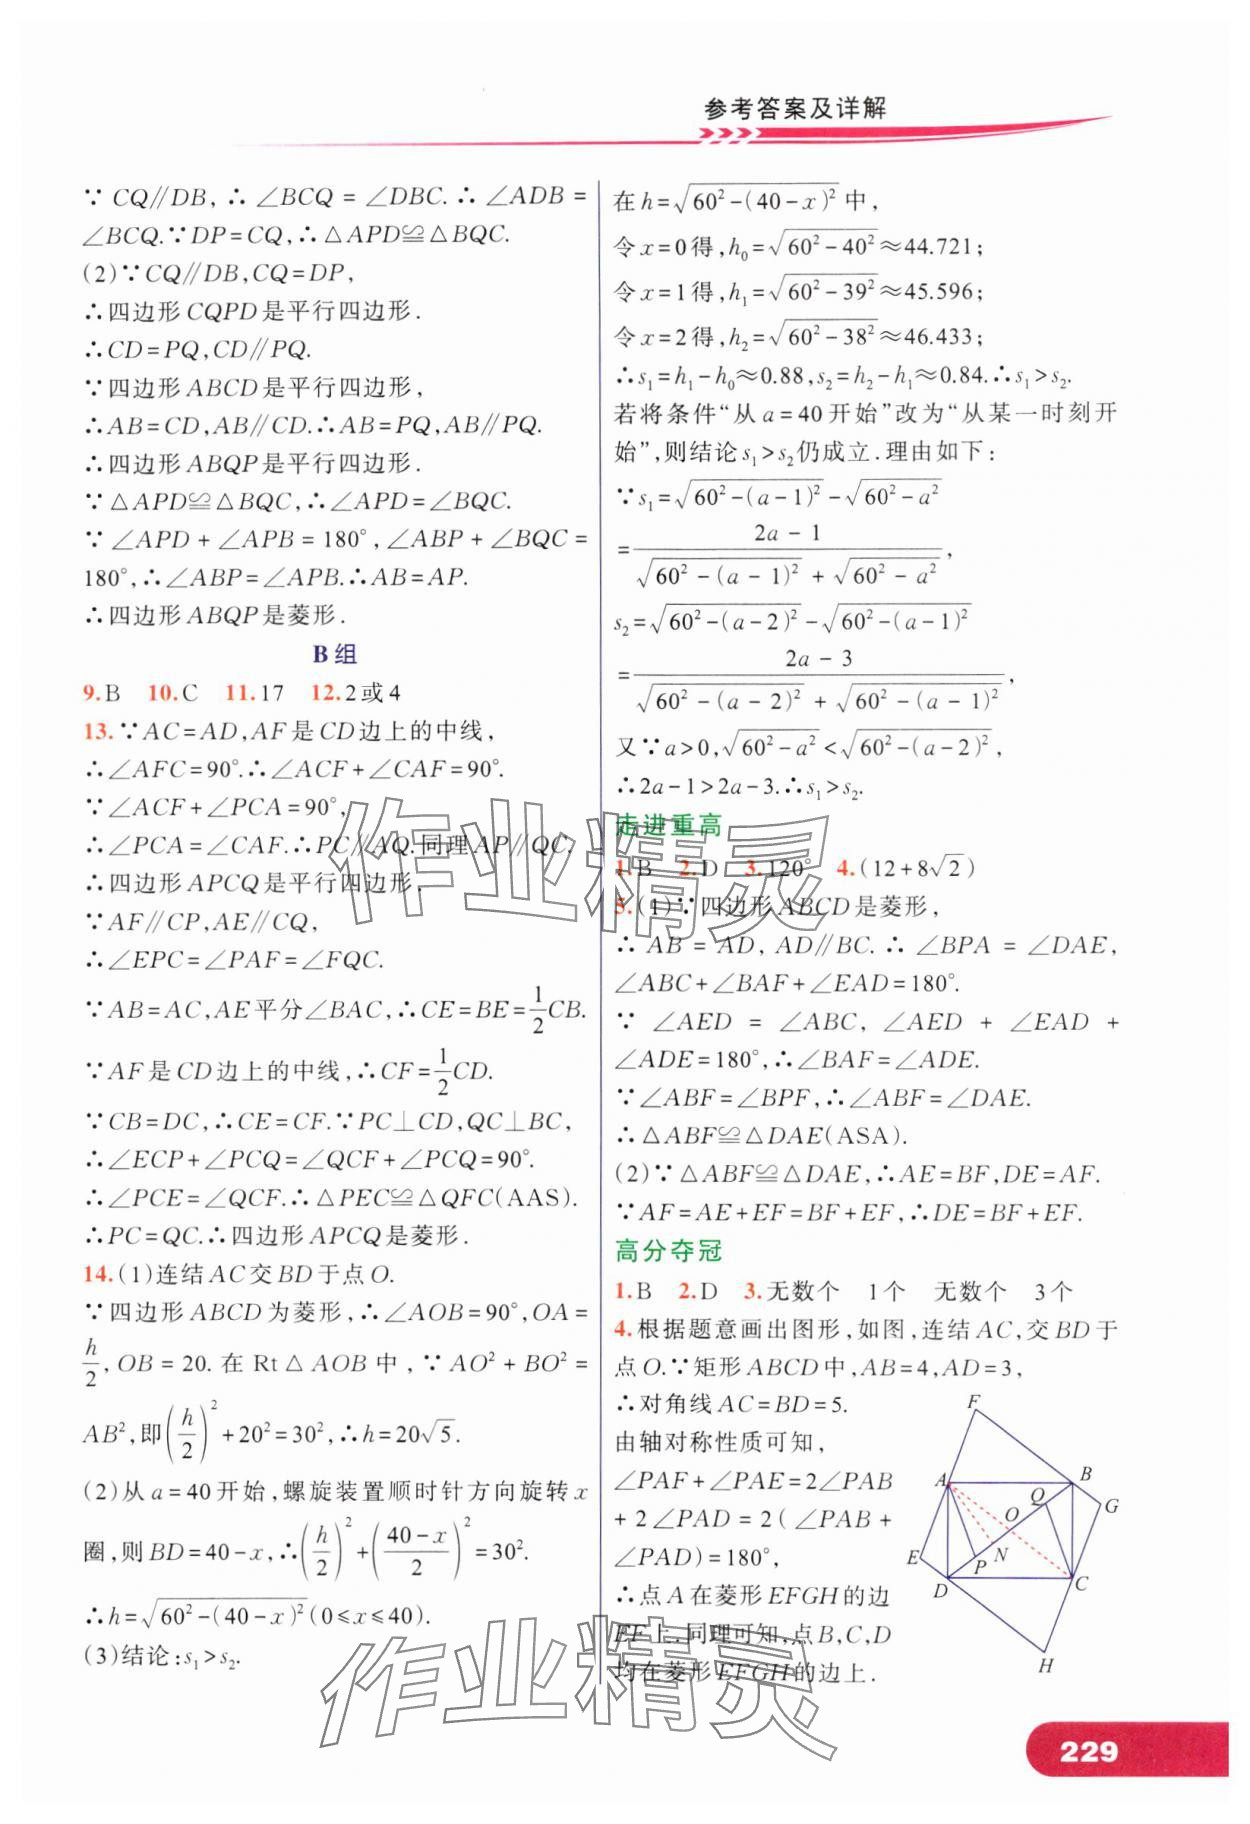 参考答案及详解
∵CQ∥DB,∴∠BCQ=∠DBC.∴∠ADB=
∠BCQ.∵DP=CQ,∴△APD≌△BQC.
(2)∵CQ∥DB,CQ=DP,
∴四边形CQPD是平行四边形.
∴CD=PQ,CD∥PQ.
∵四边形ABCD是平行四边形,
∴AB=CD,AB∥CD.∴AB=PQ,AB∥PQ.
∴四边形ABQP是平行四边形.
∵△APD≌△BQC,∴∠APD=∠BQC.
∵∠APD+∠APB=180°,∠ABP+∠BQC=
180°,∴∠ABP=∠APB.∴AB=AP.
∴四边形ABQP是菱形.
B组
9.B 10.C 11.17 12.2或4
13.∵AC=AD,AF是CD边上的中线,
∴∠AFC=90°.∴∠ACF+∠CAF=90°.
∵∠ACF+∠PCA=90°,
∴∠PCA=∠CAF.∴PC∥AQ.同理AP∥QC,
∴四边形APCQ是平行四边形.
∵AF∥CP,AE∥CQ,
∴∠EPC=∠PAF=∠FQC.
∵AB=AC,AE平分∠BAC,∴CE=BE=1/2CB.
∵AF是CD边上的中线,∴CF=1/2CD.
∵CB=DC,∴CE=CF.∵PC⊥CD,QC⊥BC,
∴∠ECP+∠PCQ=∠QCF+∠PCQ=90°.
∴∠PCE=∠QCF.∴△PEC≌△QFC(AAS).
∴PC=QC.∴四边形APCQ是菱形.
14.(1)连结AC交BD于点O.
∵四边形ABCD为菱形,∴∠AOB=90°,OA=
h/2,OB=20.在Rt△AOB中,∵AO²+BO²=
AB²,即(h/2)²+20²=30²,∴h=20√5.
(2)从a=40开始,螺旋装置顺时针方向旋转x
圈,则BD=40-x,∴(h/2)²+((40-x)/2)²=30².
∴h=√(60²-(40-x)²)(0≤x≤40).
(3)结论:s₁>s₂.
在h=√(60²-(40-x)²)中,
令x=0得,h₀=√(60²-40²)≈44.721;
令x=1得,h₁=√(60²-39²)≈45.596;
令x=2得,h₂=√(60²-38²)≈46.433;
∴s₁=h₁-h₀≈0.88,s₂=h₂-h₁≈0.84.∴s₁>s₂.
若将条件“从a=40开始”改为“从某一时刻开
始”,则结论s₁>s₂仍成立.理由如下:
∵s₁=√(60²-(a-1)²)-√(60²-a²)
=(2a-1)/(√(60²-(a-1)²)+√(60²-a²)),
s₂=√(60²-(a-2)²)-√(60²-(a-1)²)
=(2a-3)/(√(60²-(a-2)²)+√(60²-(a-1)²)),
又∵a>0,√(60²-a²)<√(60²-(a-2)²),
∴2a-1>2a-3.∴s₁>s₂.
走进重高
1.B 2.D 3.120° 4.(12+8√2)
5.(1)∵四边形ABCD是菱形,
∴AB=AD,AD∥BC.∴∠BPA=∠DAE,
∠ABC+∠BAF+∠EAD=180°.
∵∠AED=∠ABC,∠AED+∠EAD+
∠ADE=180°,∴∠BAF=∠ADE.
∵∠ABF=∠BPF,∴∠ABF=∠DAE.
∴△ABF≌△DAE(ASA).
(2)∵△ABF≌△DAE,∴AE=BF,DE=AF.
∵AF=AE+EF=BF+EF,∴DE=BF+EF.
高分夺冠
1.B 2.D 3.无数个 1个 无数个 3个
4.根据题意画出图形,如图,连结AC,交BD于
点O.∵矩形ABCD中,AB=4,AD=3,
∴对角线AC=BD=5.
由轴对称性质可知,
∠PAF+∠PAE=2∠PAB
+2∠PAD=2(∠PAB+
∠PAD)=180°,
∴点A在菱形EFGH的边
EF上.同理可知,点B,C,D
均在菱形EFGH的边上.
F
A
B
G
Q
O
N
P
E
D
C
H
229
作业精灵
作业精灵